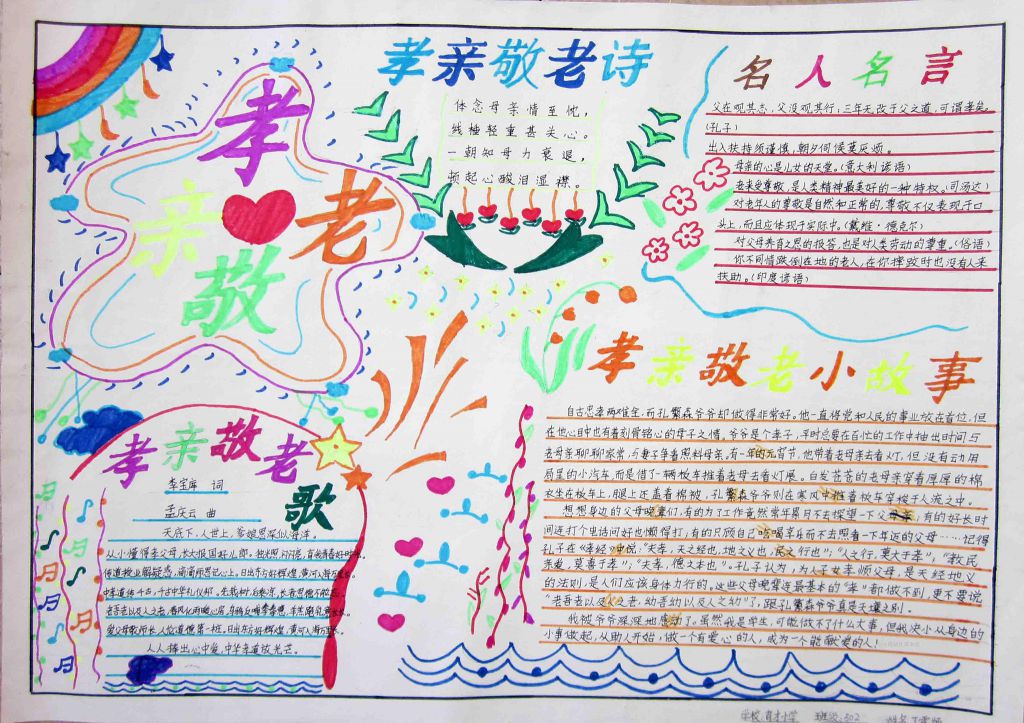 孝
亲 老
敬
孝亲敬老诗
体念母亲情至忱,
线柚轻重甚关心。
一朝知母力衰退,
顿起心酸泪湿襟。
名人名言
父在观其志,父没观其行,三年无改于父之道,可谓孝矣。
(孔子)
出入扶持须谨慎,朝夕伺候莫厌烦。
母亲的心是儿女的天堂。(意大利谚语)
老来受尊敬,是人类精神最美好的一种特权。(司汤达)
对老年人的尊敬是自然和正常的,尊敬不仅表现于口
头上,而且应体现于实际中。(戴维·德克尔)
对父母养育之恩的报答,也是对人类劳动的尊重。(俗语)
你不同情跌倒在地的老人,在你摔跤时也没有人来
扶助。(印度谚语)
孝亲敬老小故事
自古忠孝两难全,而孔繁森爷爷却做得非常好。他一直将党和人民的事业放在首位,但
在他心目中也有着刻骨铭心的母子之情。爷爷是个孝子,平时总要在百忙的工作中抽出时间与
老母亲聊聊家常,与妻子争着照料母亲,有一年的元宵节,他带着老母亲去看灯,但没有动用
局里的小汽车,而是借了一辆板车推着老母去看灯展。白发苍苍的老母亲穿着厚厚的棉
衣坐在板车上,腿上还盖着棉被,孔繁森爷爷则在寒风中推着板车穿梭于人流之中。
想想身边的父母晚辈们,有的为了工作竟然常年累月不去探望一下父母;有的好长时
间连打个电话问好也懒得打;有的只顾自己吃喝享乐而不去照看一下年迈的父母……记得
孔子在《孝经》中说:“夫孝,天之经也,地之义也,民之行也”;“人之行,莫大于孝”,“教民
亲爱,莫善于孝”;“夫孝,德之本也”。孔子认为,为人子女孝顺父母,是天经地义
的法则,是人们应该身体力行的。这些父母晚辈连最基本的“孝”都做不到,更不要说
“老吾老以及人之老,幼吾幼以及人之幼”了,跟孔繁森爷爷真是天壤之别。
我被爷爷深深地感动了。虽然我是学生,可能做不了什么大事,但我决心从身边的
小事做起,从助人开始,做一个有爱心的人,成为一个能献爱的人!
孝亲敬老
歌
李宝库 词
孟庆云 曲
天底下,人世上,爹娘恩深似海洋。
从小懂得孝父母,长大报国好儿郎。
传道授业解疑惑,
日出东方好辉煌,黄河入海万里长。
中孝道传千古,千古中华礼仪邦。
老吾老以及人之老,春风化雨暖心房。
日出东方好辉煌,黄河入海万里长。
人人捧出心中爱,中华孝道放光芒。
学校:育才小学 班级:502 姓名: